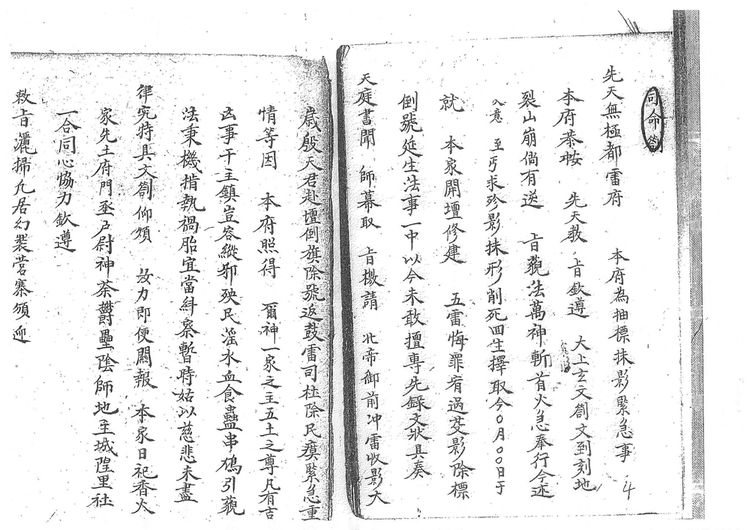 司命劄
先天無極都雷府　本府為抽標抹影緊急事
本府恭按　先天教　旨欽遵　大上玄天劄文到刻地
裂山崩倘有送　旨觀法萬神斬首火急奉行今述
入意　至丐求珍影抹形削死回生擇取今〇月〇〇日于
就　本家開壇修建　五雷悔罪宥過芟影除標
倒號延生法事一中以今未敢擅專先錄文狀具奏
天庭書聞　師幕取　旨機請　北帝御前冲雷收影大
歲殷天君赴壇倒旗除號返鼓雷司社除民瘼緊急重
情等因　本府照得　爾神一家之主五土之尊凡有吉
凶事干主鎮豈容縱邪殃民滛水血食蠱串鴆引觀
法秉機措執禍胎宜當糾察暫時姑以慈悲未盡
律究特具文劄仰煩　效力即便關報　本家日祀香火
家先土府門丞户尉神荼鬱壘陰師地主城隍里社
一合同心協力欽遵
敕旨灑掃凡居幻裝營寨須迎